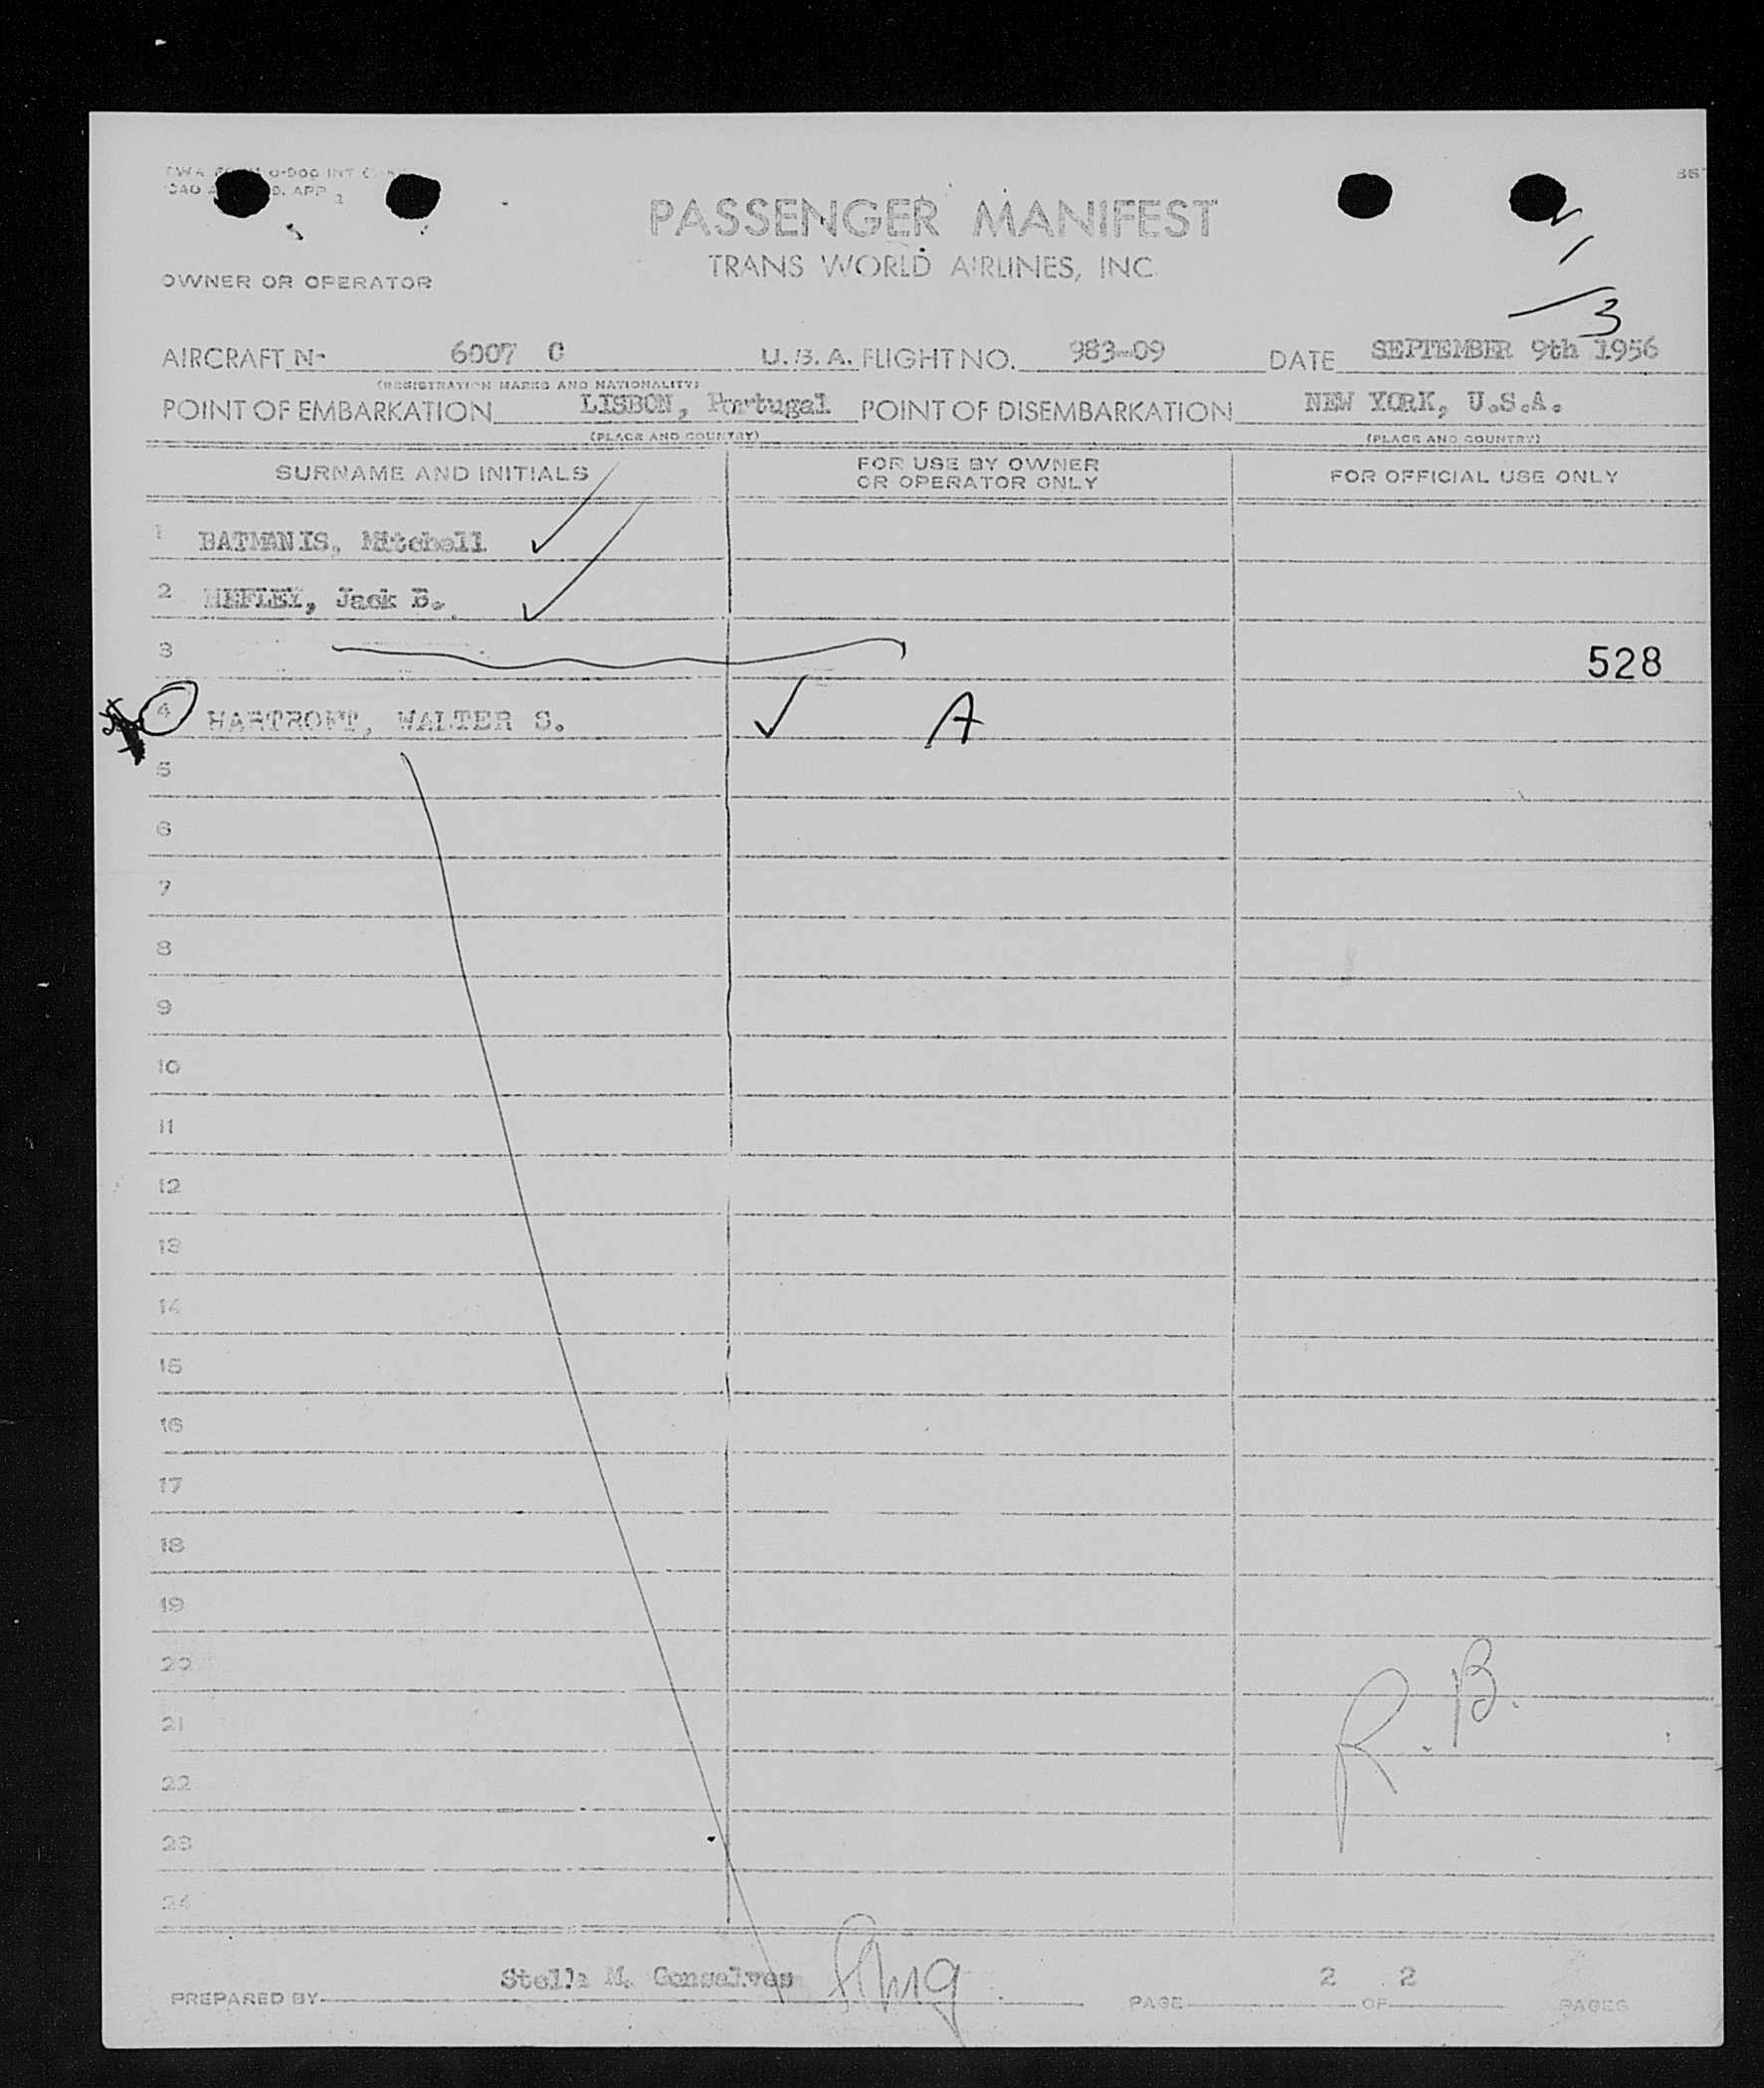 PASSENGER MANIFEST
TRANS WORLD AIRLINES, INC.
OWNER OR OPERATOR
3
AIRCRAFT N- 6007 C U.S.A. FLIGHT NO. 983-09 DATE SEPTEMBER 9th 1956
(REGISTRATION MARKS AND NATIONALITY)
POINT OF EMBARKATION LISBON, Portugal POINT OF DISEMBARKATION NEW YORK, U.S.A.
(PLACE AND COUNTRY) (PLACE AND COUNTRY)
SURNAME AND INITIALS FOR USE BY OWNER OR OPERATOR ONLY FOR OFFICIAL USE ONLY
1 BATMANIS, Mitchell
2 HEFLEY, Jack B.
3 528
4 HARTROFT, WALTER S. A
5
6
7
8
9
10
11
12
13
14
15
16
17
18
19
20
21
22
23
24
R. B.
PREPARED BY Stella M. Gonsalves PAGE 2 OF 2 PAGES